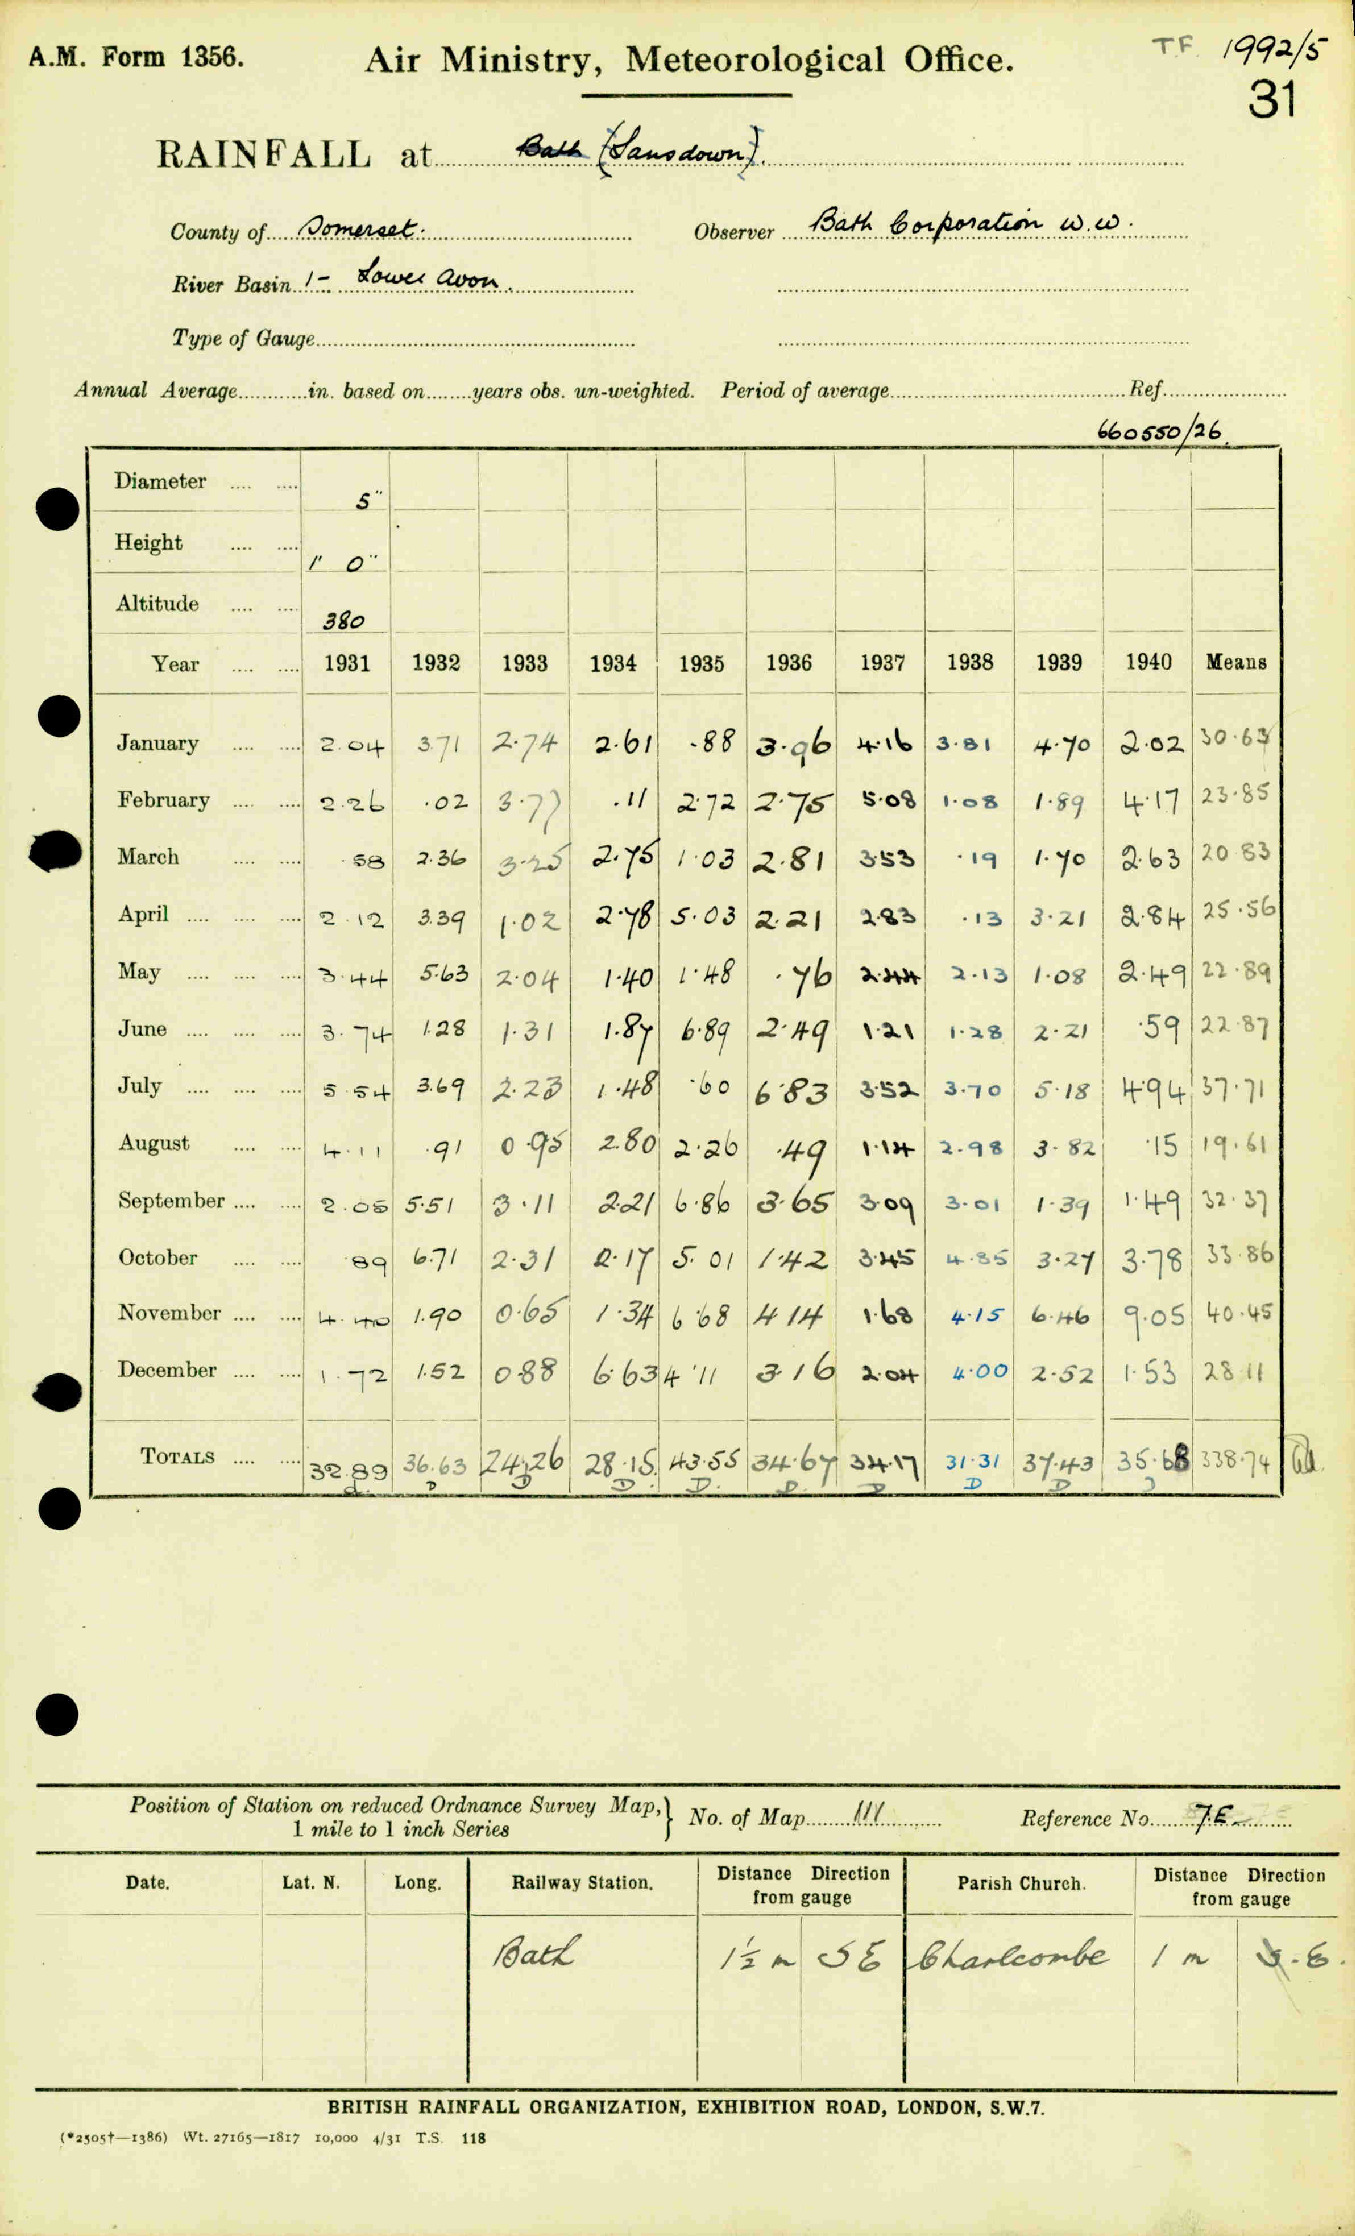 A.M. Form 1356.
Air Ministry, Meteorological Office.
TF. 1992/5
31
RAINFALL at Bath (Lansdown).
County of Somerset. Observer Bath Corporation W.W.
River Basin 1- Lower Avon.
Type of Gauge
Annual Average in. based on years obs. un-weighted. Period of average Ref.
660550/26.
Diameter 5"
Height 1' 0"
Altitude 380
Year 1931 1932 1933 1934 1935 1936 1937 1938 1939 1940 Means
January 2.04 3.71 2.74 2.61 .88 3.96 4.16 3.81 4.70 2.02 30.63
February 2.26 .02 3.77 .11 2.72 2.75 5.08 1.08 1.89 4.17 23.85
March .58 2.36 3.25 2.75 1.03 2.81 3.53 .19 1.70 2.63 20.83
April 2.12 3.39 1.02 2.78 5.03 2.21 2.83 .13 3.21 2.84 25.56
May 3.44 5.63 2.04 1.40 1.48 .76 2.44 2.13 1.08 2.49 22.89
June 3.74 1.28 1.31 1.87 6.89 2.49 1.21 1.28 2.21 .59 22.87
July 5.54 3.69 2.23 1.48 .60 6.83 3.52 3.70 5.18 4.94 37.71
August 4.11 .91 0.95 2.80 2.26 .49 1.14 2.98 3.82 .15 19.61
September 2.05 5.51 3.11 2.21 6.86 3.65 3.09 3.01 1.39 1.49 32.37
October .89 6.71 2.31 2.17 5.01 1.42 3.45 4.85 3.27 3.78 33.86
November 4.40 1.90 0.65 1.34 6.68 4.14 1.68 4.15 6.46 9.05 40.45
December 1.72 1.52 0.88 6.63 4.11 3.16 2.04 4.00 2.52 1.53 28.11
TOTALS 32.89 36.63 24.26 28.15 43.55 34.67 34.17 31.31 37.43 35.68 338.74
d. D D D. D. D. D D D D
Position of Station on reduced Ordnance Survey Map, 1 mile to 1 inch Series } No. of Map 111 Reference No. 7E
Date. Lat. N. Long. Railway Station. Distance Direction from gauge Parish Church. Distance Direction from gauge
Bath 1½ m S E Charlcombe 1 m S.E.
BRITISH RAINFALL ORGANIZATION, EXHIBITION ROAD, LONDON, S.W.7.
(*2505†—1386) Wt. 27165—1817 10,000 4/31 T.S. 118